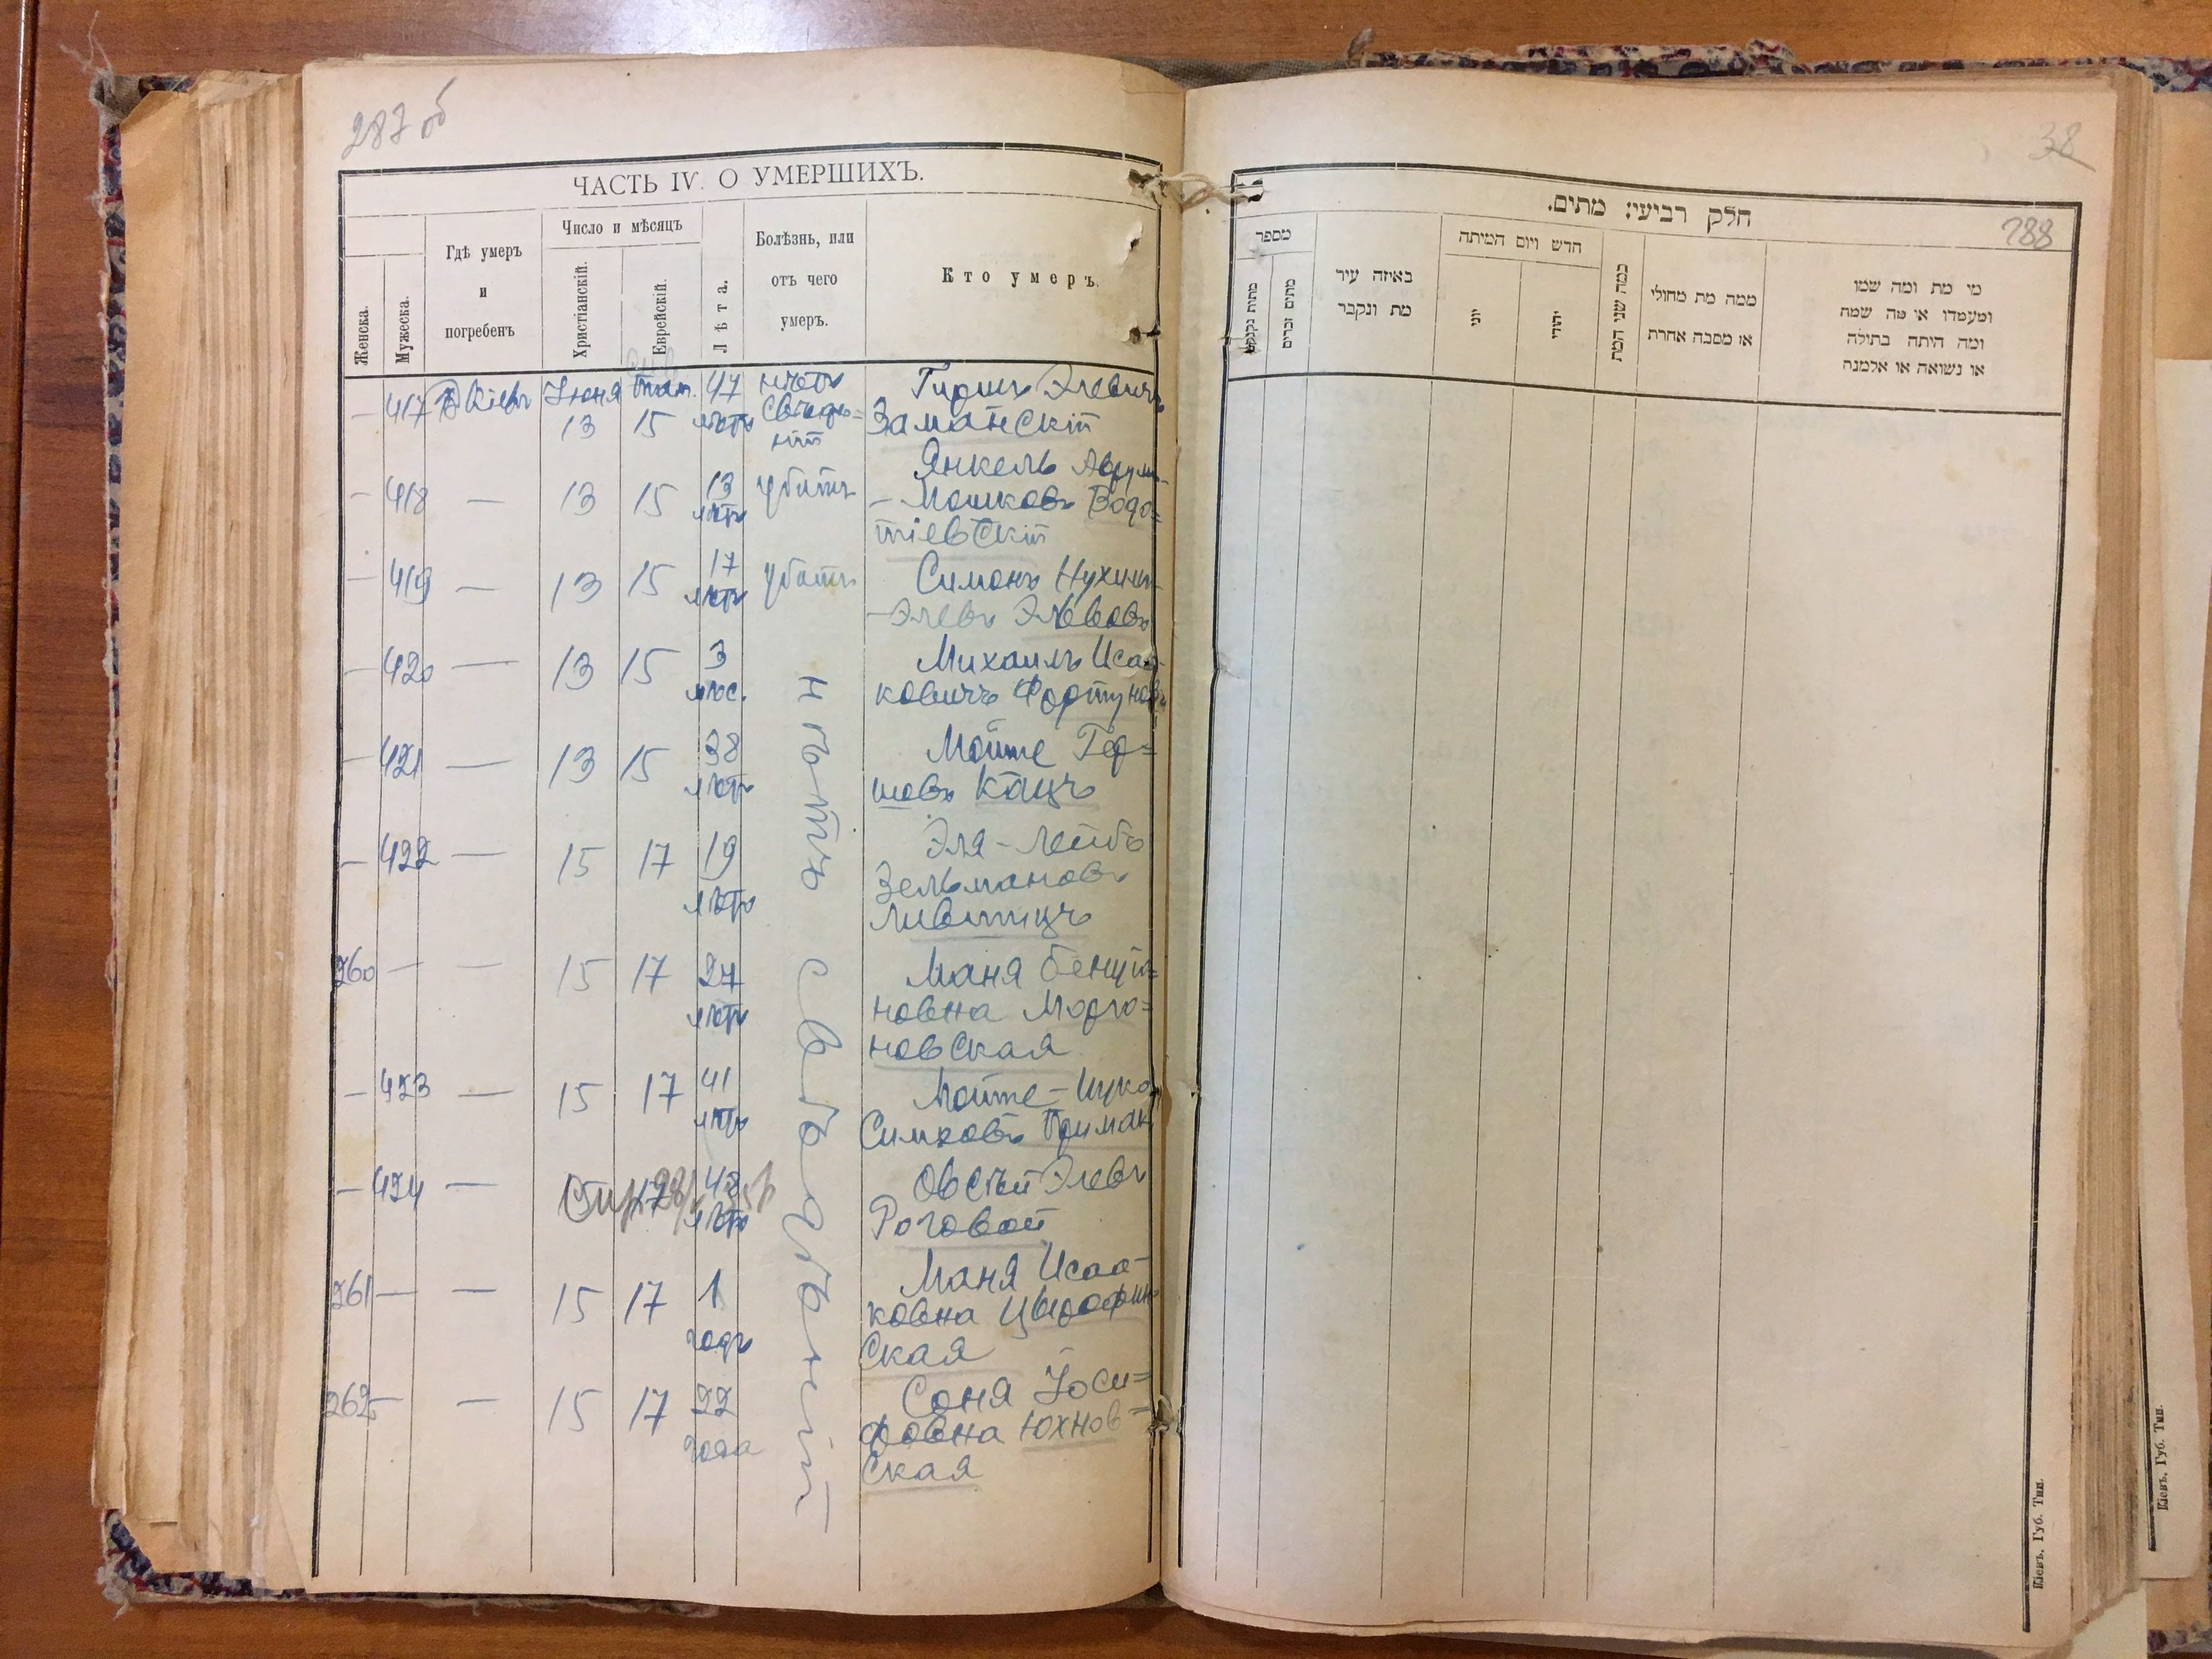 287 об
ЧАСТЬ IV. О УМЕРШИХЪ.
Женска.
Мужеска.
Гдѣ умеръ
и
погребенъ
Число и мѣсяцъ
Христіанскій.
Еврейскій.
Лѣта.
Болѣзнь, или
отъ чего
умеръ.
Кто умеръ.
— 417 В Кіевѣ Іюня 47 нѣтъ Гиршъ Элевичъ
13 15 лѣтъ свѣдѣ=
ній Заманскій
— 418 — 13 15 13 лѣтъ убитъ Янкель Аврум-
-Мошковъ Водо=
тіевскій
— 419 — 13 15 17 лѣтъ убитъ Симонъ Нухим-
-Элевъ
— 420 — 13 15 3 мѣс. Михаилъ Исаа-
ковичъ Фортуновъ
— 421 — 13 15 38 лѣтъ Мойше Гер=
шовъ Кацъ
— 422 — 15 17 19 лѣтъ Эля-Лейбъ
Зельмановъ
Лившицъ
260 — — 15 17 27 лѣтъ Маня
новна
новская
— 423 — 15 17 41 лѣтъ Мойше-
Симховъ Примак
— 424 — 17 48 лѣтъ Овсѣй Элевъ
Роговой
261 — — 15 17 1 годъ Маня Исаа-
ковна
ская
262 — — 15 17 22 года Соня Іоси=
фовна Юхнов=
ская
нѣтъ свѣдѣній
38
288
חלק רביעי: מתים.
מספר
מתות נקבות
מתים זכרים
באיזה עיר
מת ונקבר
חדש ויום המיתה
יוני
יהודי
כמה שני המת
ממה מת מחולי
או מסבה אחרת
מי מת ומה שמו
ומעמדו או מה שמה
ומה היתה בתולה
או נשואה או אלמנה
Кіевъ, Губ. Тип.
Кіевъ, Губ. Тип.